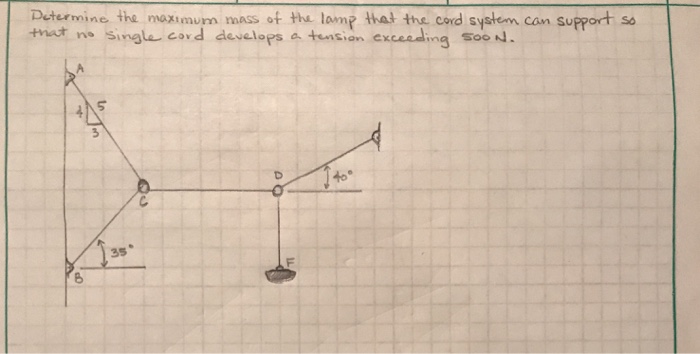 Determine the maximum mass of the lamp that the cord system can support so
that no single cord develops a tension exceeding 500 N.
A
4 5
3
D
40°
C
35°
B
F